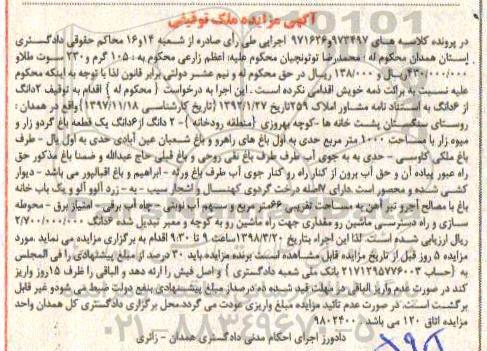 آگهی مزایده ملک توقیفی
در پرونده کلاسه های ۹۷۳۴۹۷و۹۷۱۶۳۶ اجرایی طی رأی صادره از شعبه ۱۴و۱۶ محاکم حقوقی دادگستری
استان همدان محکوم له : محمدرضا توتونچیان محکوم علیه: اعظم زارعی محکوم به : ۱۰۵ گرم و ۲۳۰ سوت طلاو
۴۳۰/۰۰۰/۰۰۰ریال و ۱۳۸/۰۰۰ ریال در حق محکوم له و نیم عشر دولتی برابر قانون لذا با توجه به اینکه محکوم
علیه نسبت به برائت ذمه خویش اقدامی نکرده است . این اجرا به درخواست { محکوم له } اقدام به توقیف ۲دانگ
از ۶دانگ به استناد نامه مشاور املاک ۲۵۹تاریخ ۱۳۹۲/۱/۲۷ {تاریخ کارشناسی ۱۳۹۷/۱۱/۱۸} واقع در همدان :
روستای سنگستان پشت خانه ها -کوچه بهروزی {منطقه رودخانه}- ۲ دانگ از ۶دانگ یک قطعه باغ گردو زار و
میوه زار با مساحت ۱۰۰۰ متر مربع حدی به اول باغ های راهرو و باغ شعبان عین آبادی حدی به اول پال - طرف
باغ ملکی کاوسی - حدی به به جوی آب طرف طرف باغ نقی روحی و باغ قبلی حاج عبدالله و ضمنا باغ مذکور حق
راه عبور پیاده آن و حق آب برون از کنار راه رو کنار جوی آب طرف باغ ورثه - ابراهیم و باغ اقبالپور می باشد - دیوار
کشی شده و محصور است.دارای ۷اصله درخت گردوی کهنسال و اشجار سیب - به - زرد آلوو آلو و یک باب خانه
باغ با مصالح آجرو تیر آهن به مساحت تقریبی ۶۶متر مربع و سهم آب نوبتی - چاه آب برقی - امتیاز برق - محوطه
سازی و راه دسترسی ماشین رو مقداری جهت راه ماشین رو به کوچه و معبر تبدیل شده ۶دانگ ۲/۷۰۰/۰۰۰/۰۰۰
ریال ارزیابی شده است. لذا این اجراء بتاریخ ۱۳۹۸/۳/۲۰ساعت ۹ تا ۹:۳۰ اقدام به برگزاری مزایده می نماید .مورد
مزایده ۵ روز قبل از تاریخ مزایده قابل مشاهده است. برنده مزایده باید ۳۰ درصد از مبلغ پیشنهادی را فی المجلس
به {حساب ۲۱۷۱۲۹۵۷۷۶۰۰۳ بانک ملی شعبه دادگستری } و اصل فیش را ارئه دهد و الباقی را ظرف ۱۵روز واریز
کند در صورت عدم واریز الباقی در مهلت قید شده ده درصداز مبلغ پیشنهادی بنفع دولت ضبط می شودو غیر قابل
برگشت است. در صورت عدم تائید مزایده مبلغ واریزی عودت می گردد.محل برگزاری دادگستری کل همدان واحد
مزایده اتاق ۱۲۰ می باشد: ۹۸۰۲۴۰۰
دادورز اجرای احکام مدنی دادگستری همدان - زائری
۰۲۱-۸۸۳۴۹۶۷۰-۵